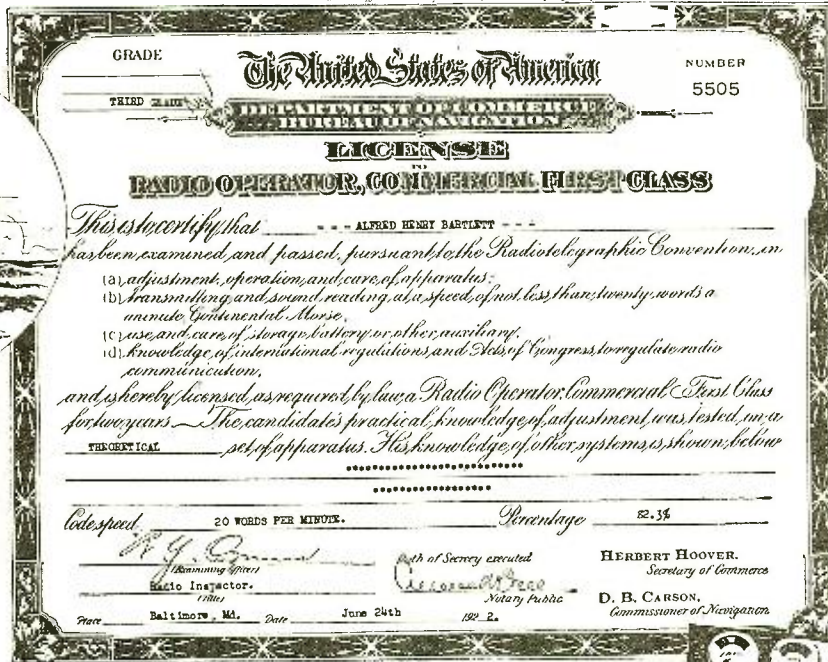 GRADE
The United States of America
NUMBER
5505
THIRD GRADE
DEPARTMENT OF COMMERCE
BUREAU OF NAVIGATION
LICENSE
TO
RADIO OPERATOR, COMMERCIAL FIRST CLASS
This is to certify that - - - ALFRED HENRY BARTLETT - - -
has been examined and passed, pursuant to the Radiotelegraphic Convention, in
(a) adjustment, operation, and care of apparatus;
(b) transmitting and sound reading at a speed of not less than twenty words a
minute Continental Morse,
(c) use and care of storage battery or other auxiliary,
(d) knowledge of international regulations and Acts of Congress to regulate radio
communication,
and is hereby licensed as required by law a Radio Operator, Commercial First Class
for two years — The candidate's practical knowledge of adjustment was tested on a
THEORETICAL set of apparatus. His knowledge of other systems is shown below
Code speed 20 WORDS PER MINUTE. Percentage 82.3%
(Examining officer)
Oath of Secrecy executed
HERBERT HOOVER.
Secretary of Commerce
Radio Inspector.
(Title)
Notary Public
D. B. CARSON,
Commissioner of Navigation
Place Baltimore, Md. Date June 24th 1922.